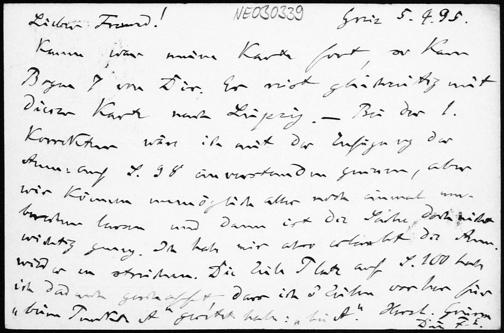 Lieber Freund! NE030339 Graz 5.9.95.
Kaum war meine Karte fort, so kam
Bogen 7 von Dir. Er reist gleichzeitig mit
dieser Karte nach Leipzig. — Bei der 1.
Korrektur wäre ich mit der Einfügung der
Anm. auf S. 98 einverstanden gewesen, aber
wir können unmöglich alles noch einmal um-
brechen lassen und dann ist die Sache doch nicht
wichtig genug. Ich habe mir also erlaubt die Anm.
wieder zu streichen. Die Zeile Platz auf S. 100 habe
ich dadurch geschafft, dass ich 3 Zeilen vorher für
„beim Punkte A“ gesetzt habe: „bei A“. Herzl. Grüsse